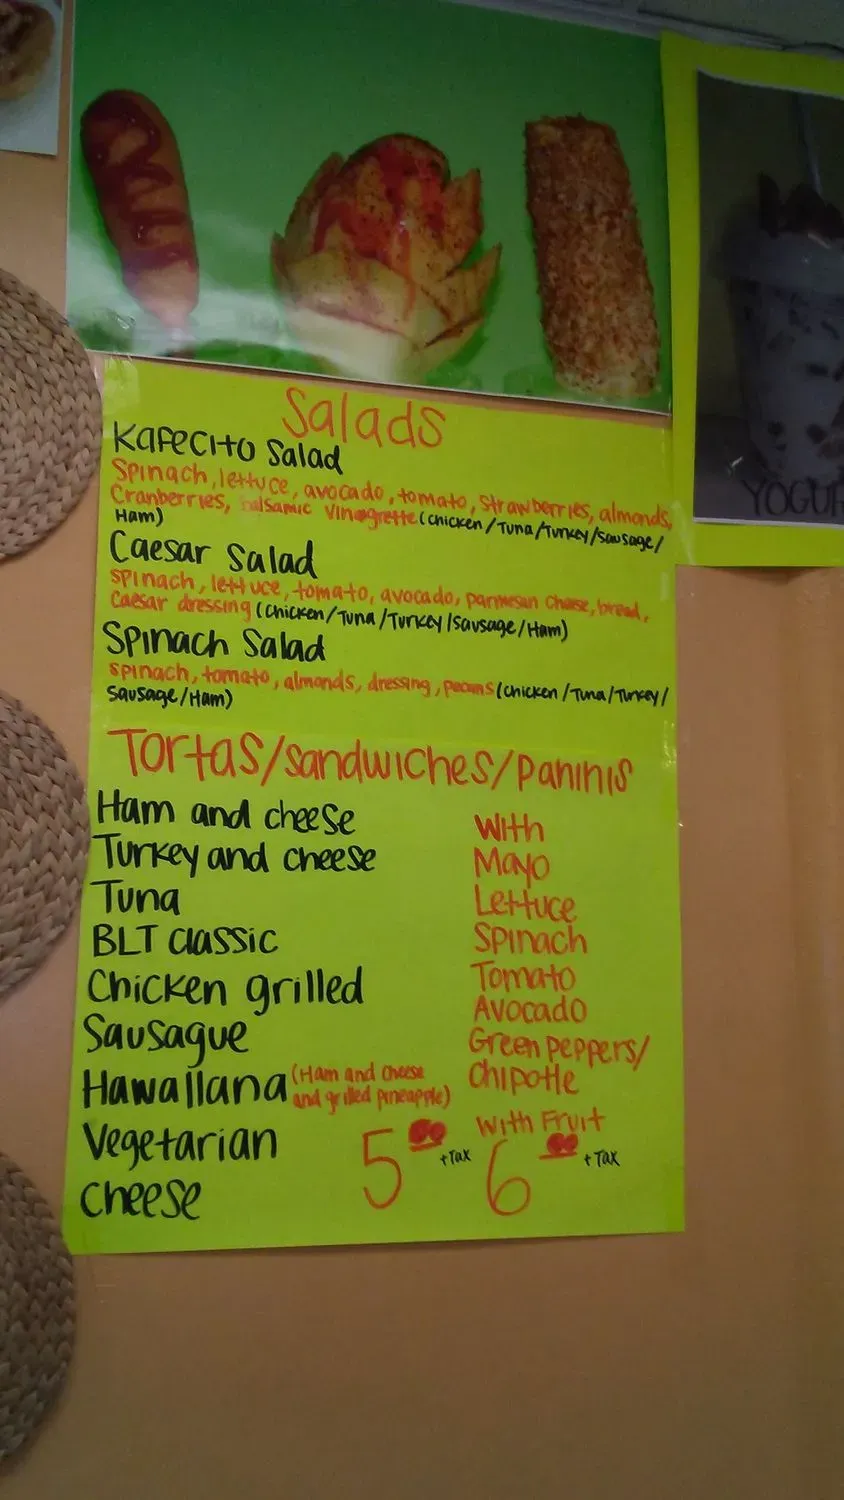 Salads
Kafecito Salad
Spinach, lettuce, avocado, tomato, strawberries, almonds,
Cranberries, balsamic vinegrette (chicken/Tuna/Turkey/sausage/
Ham)
Caesar Salad
spinach, lettuce, tomato, avocado, parmesan cheese, bread,
Caesar dressing (chicken/Tuna/Turkey/sausage/Ham)
Spinach Salad
spinach, tomato, almonds, dressing, pecans (chicken/Tuna/Turkey/
Sausage/Ham)
Tortas/sandwiches/Paninis
Ham and cheese
Turkey and cheese
Tuna
BLT classic
Chicken grilled
Sausague
Hawaiiana (Ham and cheese
and grilled pineapple)
Vegetarian
cheese
With
Mayo
Lettuce
Spinach
Tomato
Avocado
Green peppers/
Chipotle
With Fruit
5 00 + Tax 6 00 + Tax
YOGUR